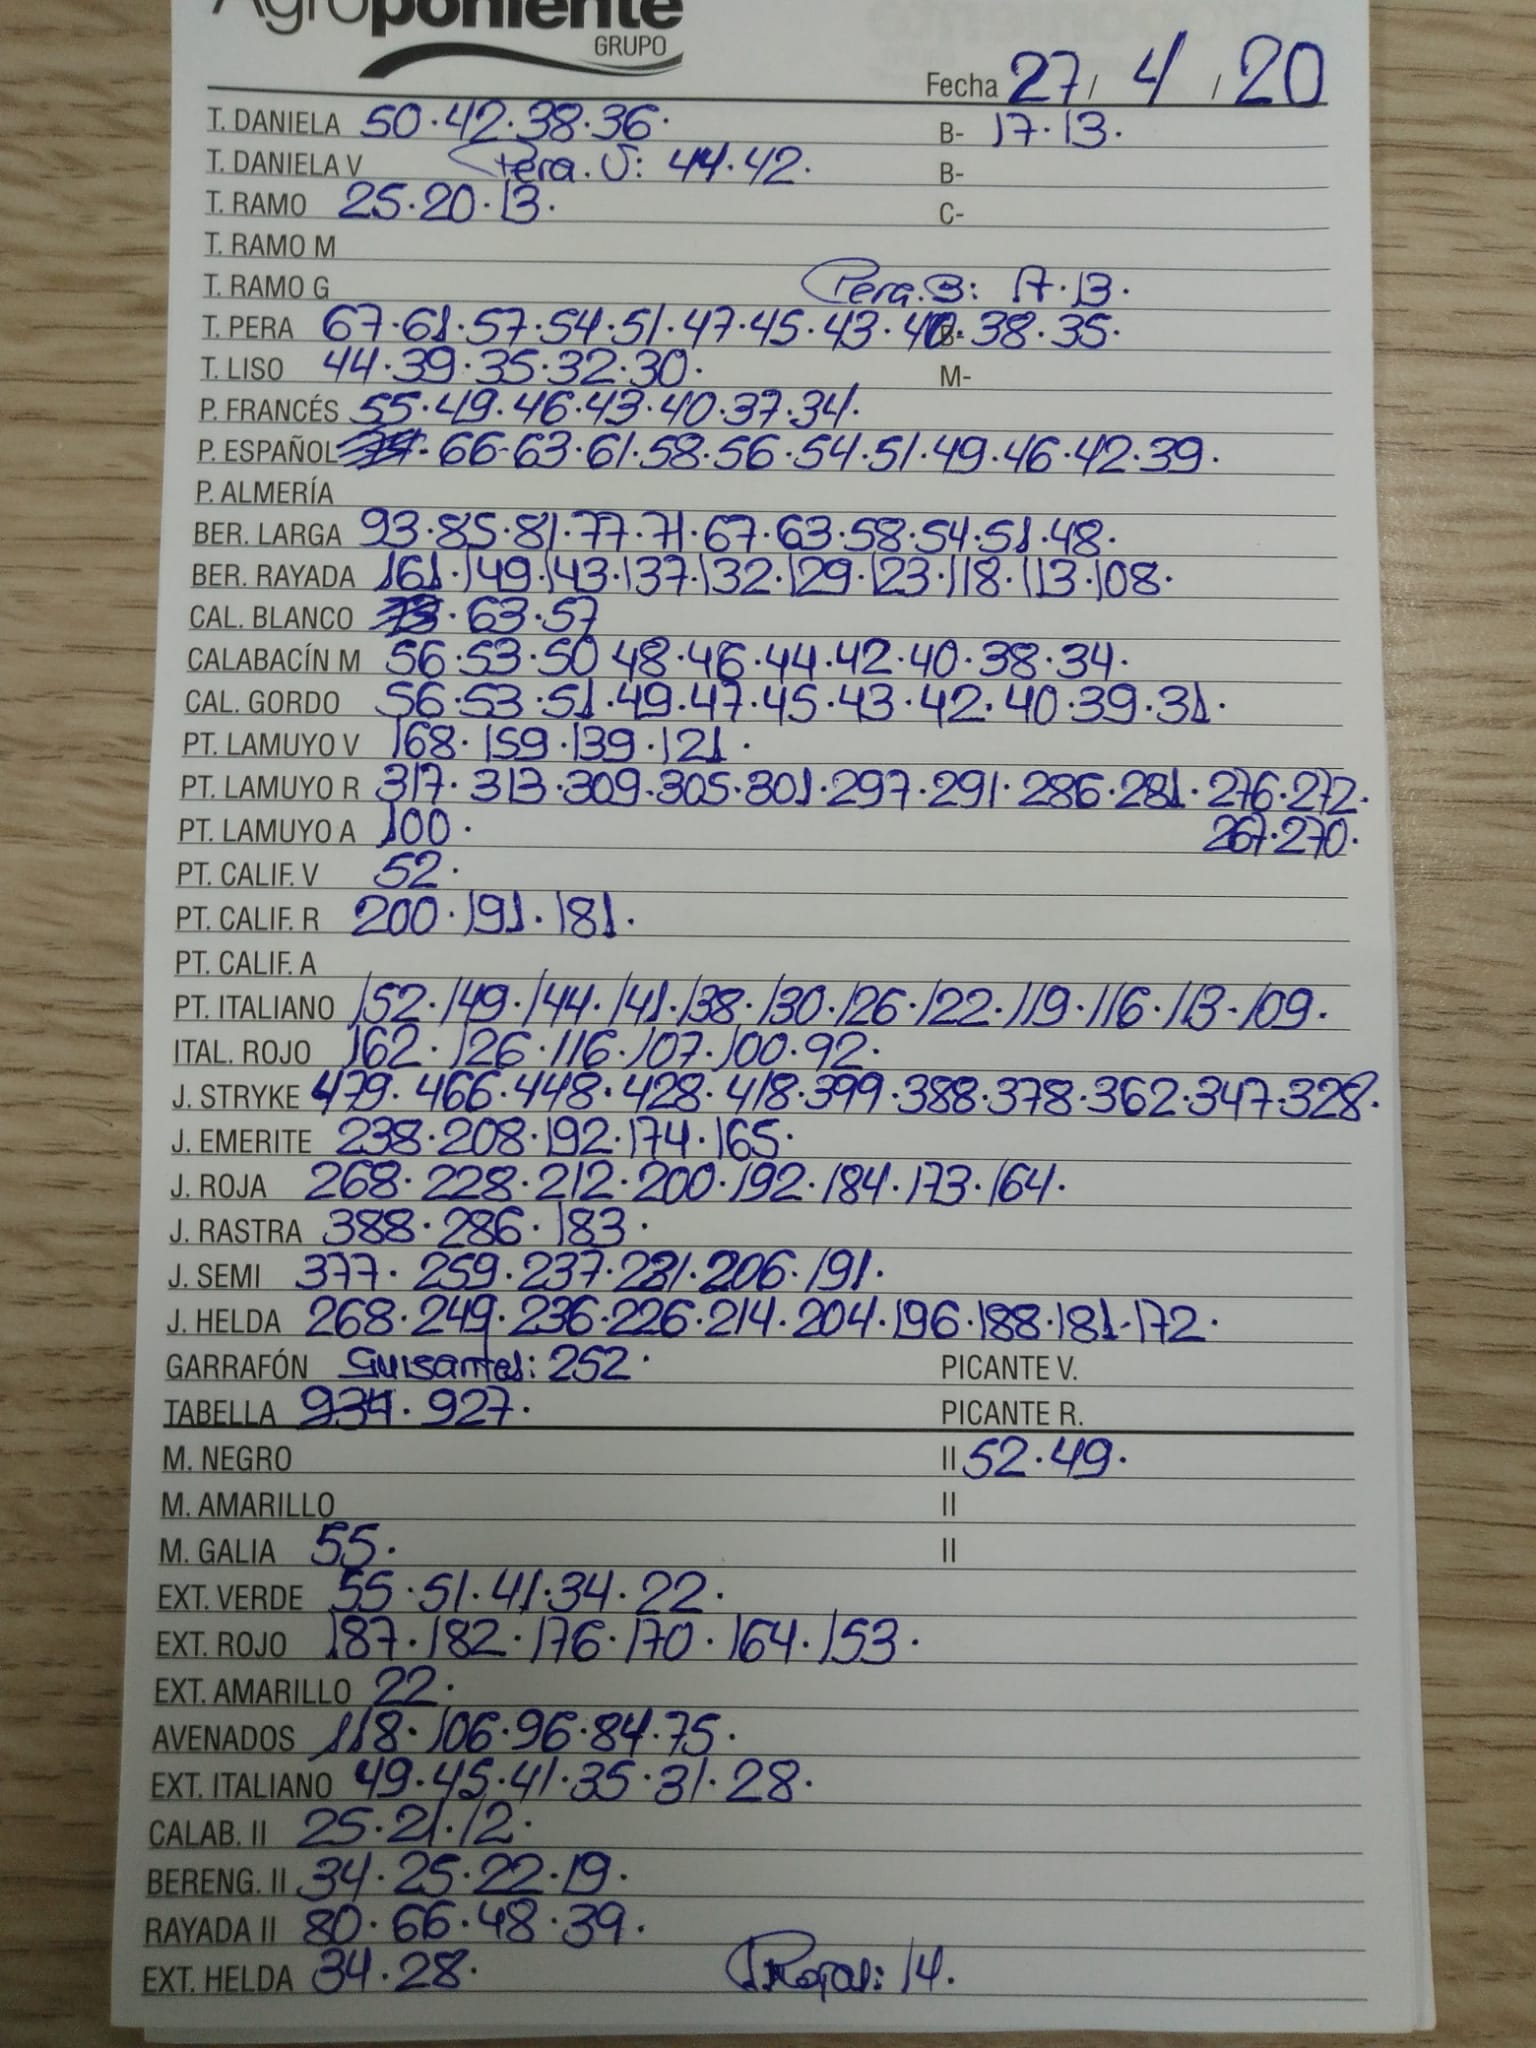 Agroponiente
GRUPO
Fecha 27 / 4 / 20
T. DANIELA 50.42.38.36. B- 17.13.
T. DANIELA V Pera.V: 44.42. B-
T. RAMO 25.20.13. C-
T. RAMO M
T. RAMO G Pera.B: 17.13.
T. PERA 67.61.57.54.51.47.45.43.40.38.35.
T. LISO 44.39.35.32.30. M-
P. FRANCÉS 55.49.46.43.40.37.34.
P. ESPAÑOL 66-63.61.58.56.54.51.49.46.42.39.
P. ALMERÍA
BER. LARGA 93.85.81.77.71.67.63.58.54.51.48.
BER. RAYADA 161.149.143.137.132.129.123.118.113.108.
CAL. BLANCO 63.57
CALABACÍN M 56.53.50 48.46.44.42.40.38.34.
CAL. GORDO 56.53.51.49.47.45.43.42.40.39.31.
PT. LAMUYO V 168.159.139.121.
PT. LAMUYO R 317.313.309.305.301.297.291.286.281.276.272.
PT. LAMUYO A 100. 267.270.
PT. CALIF. V 52.
PT. CALIF. R 200.191.181.
PT. CALIF. A
PT. ITALIANO 152.149.144.141.138.130.126.122.119.116.113.109.
ITAL. ROJO 162.126.116.107.100.92.
J. STRYKE 479.466.448.428.418.399.388.378.362.347.328.
J. EMERITE 238.208.192.174.165.
J. ROJA 268.228.212.200.192.184.173.164.
J. RASTRA 388.286.183.
J. SEMI 377.259.237.221.206.191.
J. HELDA 268.249.236.226.214.204.196.188.181.172.
GARRAFÓN Guisantes: 252. PICANTE V.
TABELLA 934.927. PICANTE R.
M. NEGRO II 52.49.
M. AMARILLO II
M. GALIA 55. II
EXT. VERDE 55.51.41.34.22.
EXT. ROJO 187.182.176.170.164.153.
EXT. AMARILLO 22.
AVENADOS 118.106.96.84.75.
EXT. ITALIANO 49.45.41.35.31.28.
CALAB. II 25.21.12.
BERENG. II 34.25.22.19.
RAYADA II 80.66.48.39.
EXT. HELDA 34.28. Rojas: 14.